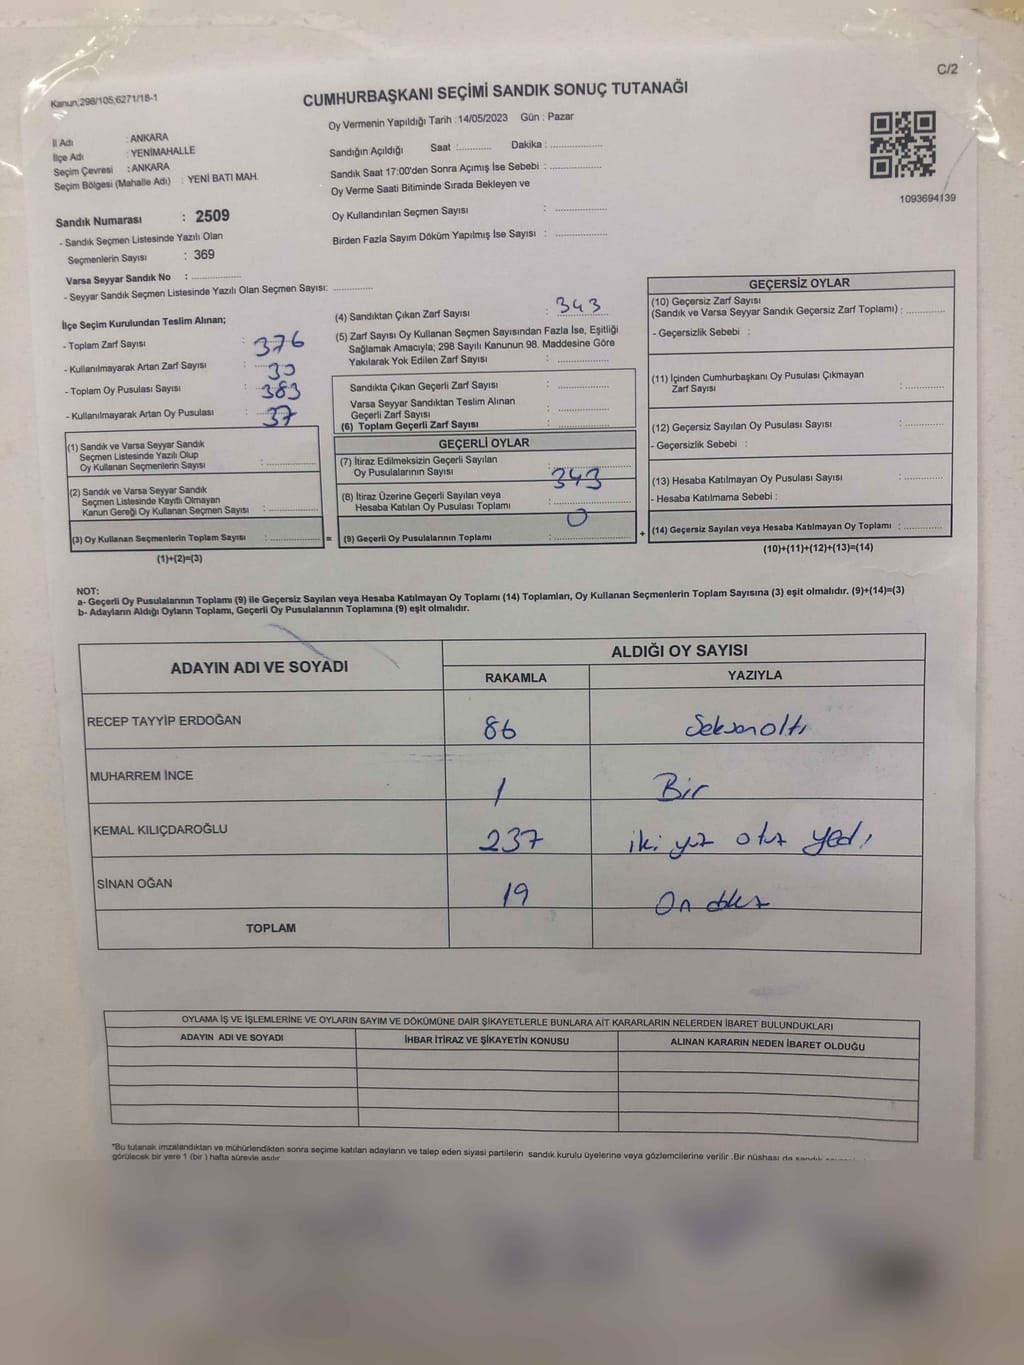 C/2
Kanun,298/105;6271/18-1
CUMHURBAŞKANI SEÇİMİ SANDIK SONUÇ TUTANAĞI
Oy Vermenin Yapıldığı Tarih :14/05/2023 Gün : Pazar
İl Adı : ANKARA
İlçe Adı : YENİMAHALLE
Seçim Çevresi : ANKARA
Seçim Bölgesi (Mahalle Adı) : YENİ BATI MAH.
Sandık Numarası : 2509
- Sandık Seçmen Listesinde Yazılı Olan
Seçmenlerin Sayısı : 369
Varsa Seyyar Sandık No : ..............
- Seyyar Sandık Seçmen Listesinde Yazılı Olan Seçmen Sayısı: ..............
Sandığın Açıldığı Saat :........... Dakika : ..............
Sandık Saat 17:00'den Sonra Açımış İse Sebebi : ..............
Oy Verme Saati Bitiminde Sırada Bekleyen ve
Oy Kullandırılan Seçmen Sayısı : ..............
Birden Fazla Sayım Döküm Yapılmış İse Sayısı : ..............
1093694139
İlçe Seçim Kurulundan Teslim Alınan;
- Toplam Zarf Sayısı : 376
- Kullanılmayarak Artan Zarf Sayısı : 30
- Toplam Oy Pusulası Sayısı : 383
- Kullanılmayarak Artan Oy Pusulası : 37
(1) Sandık ve Varsa Seyyar Sandık
Seçmen Listesinde Yazılı Olup
Oy Kullanan Seçmenlerin Sayısı : ..............
(2) Sandık ve Varsa Seyyar Sandık
Seçmen Listesinde Kayıtlı Olmayan
Kanun Gereği Oy Kullanan Seçmen Sayısı : ..............
(3) Oy Kullanan Seçmenlerin Toplam Sayısı : .............. =
(1)+(2)=(3)
(4) Sandıktan Çıkan Zarf Sayısı : 343
(5) Zarf Sayısı Oy Kullanan Seçmen Sayısından Fazla İse, Eşitliği
Sağlamak Amacıyla; 298 Sayılı Kanunun 98. Maddesine Göre
Yakılarak Yok Edilen Zarf Sayısı : ..............
Sandıkta Çıkan Geçerli Zarf Sayısı : ..............
Varsa Seyyar Sandıktan Teslim Alınan
Geçerli Zarf Sayısı : ..............
(6) Toplam Geçerli Zarf Sayısı : ..............
GEÇERLİ OYLAR
(7) İtiraz Edilmeksizin Geçerli Sayılan
Oy Pusulalarının Sayısı : 343
(8) İtiraz Üzerine Geçerli Sayılan veya
Hesaba Katılan Oy Pusulası Toplamı : 0
(9) Geçerli Oy Pusulalarının Toplamı : .............. +
GEÇERSİZ OYLAR
(10) Geçersiz Zarf Sayısı
(Sandık ve Varsa Seyyar Sandık Geçersiz Zarf Toplamı) : ..............
- Geçersizlik Sebebi :
(11) İçinden Cumhurbaşkanı Oy Pusulası Çıkmayan
Zarf Sayısı : ..............
(12) Geçersiz Sayılan Oy Pusulası Sayısı : ..............
- Geçersizlik Sebebi :
(13) Hesaba Katılmayan Oy Pusulası Sayısı : ..............
- Hesaba Katılmama Sebebi :
(14) Geçersiz Sayılan veya Hesaba Katılmayan Oy Toplamı : ..............
(10)+(11)+(12)+(13)=(14)
NOT:
a- Geçerli Oy Pusulalarının Toplamı (9) ile Geçersiz Sayılan veya Hesaba Katılmayan Oy Toplamı (14) Toplamları, Oy Kullanan Seçmenlerin Toplam Sayısına (3) eşit olmalıdır. (9)+(14)=(3)
b- Adayların Aldığı Oyların Toplamı, Geçerli Oy Pusulalarının Toplamına (9) eşit olmalıdır.
ADAYIN ADI VE SOYADI ALDIĞI OY SAYISI
RAKAMLA YAZIYLA
RECEP TAYYİP ERDOĞAN 86 Seksen altı
MUHARREM İNCE 1 Bir
KEMAL KILIÇDAROĞLU 237 iki yüz otuz yedi
SİNAN OĞAN 19 On dokuz
TOPLAM
OYLAMA İŞ VE İŞLEMLERİNE VE OYLARIN SAYIM VE DÖKÜMÜNE DAİR ŞİKAYETLERLE BUNLARA AİT KARARLARIN NELERDEN İBARET BULUNDUKLARI
ADAYIN ADI VE SOYADI İHBAR İTİRAZ VE ŞİKAYETİN KONUSU ALINAN KARARIN NEDEN İBARET OLDUĞU
*Bu tutanak imzalandıktan ve mühürlendikten sonra seçime katılan adayların ve talep eden siyasi partilerin sandık kurulu üyelerine veya gözlemcilerine verilir .Bir nüshası da sandık
görülecek bir yere 1 (bir ) hafta süreyle asılır